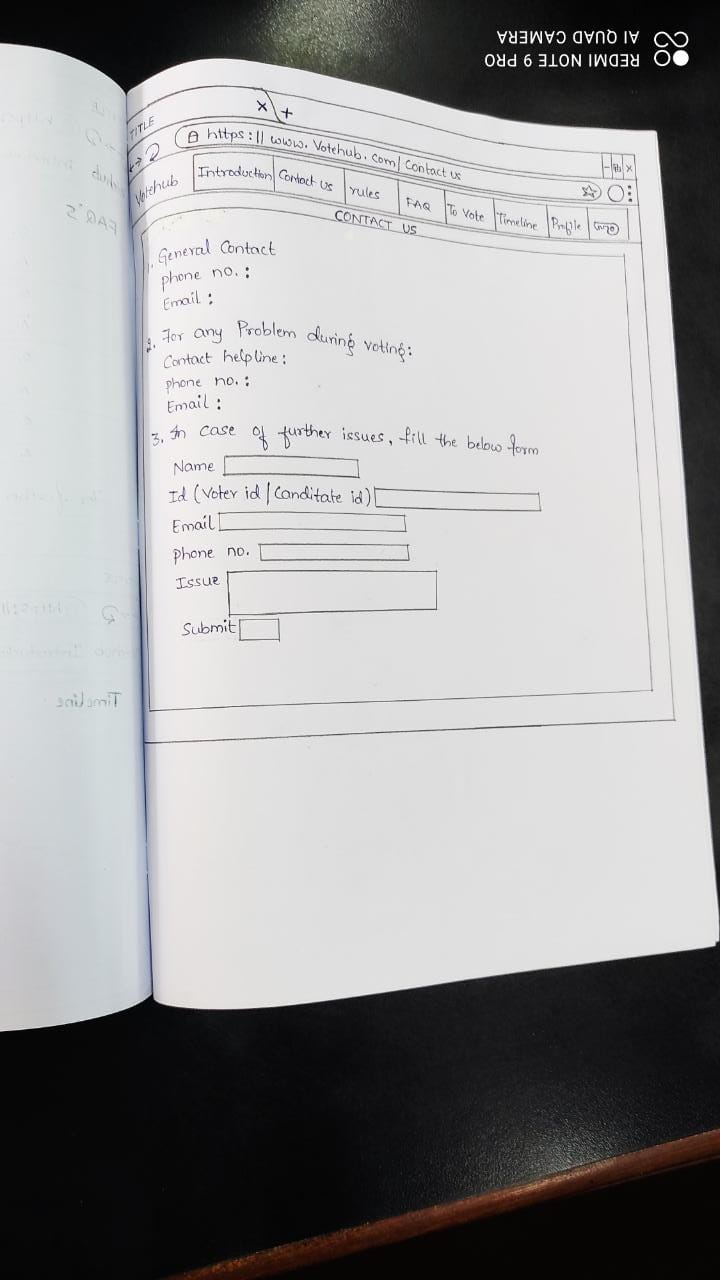 REDMI NOTE 9 PRO
AI QUAD CAMERA
TITLE x +
https:|| www. Votehub. com/ Contact us
Votehub Introduction Contact us rules FAQ To Vote Timeline Profile
CONTACT US
1. General Contact
phone no. :
Email :
2. For any Problem during voting:
Contact helpline :
phone no. :
Email :
3. In case of further issues, fill the below form
Name
Id (Voter id | Canditate id)
Email
phone no.
Issue
Submit
FAQ'S
Timeline